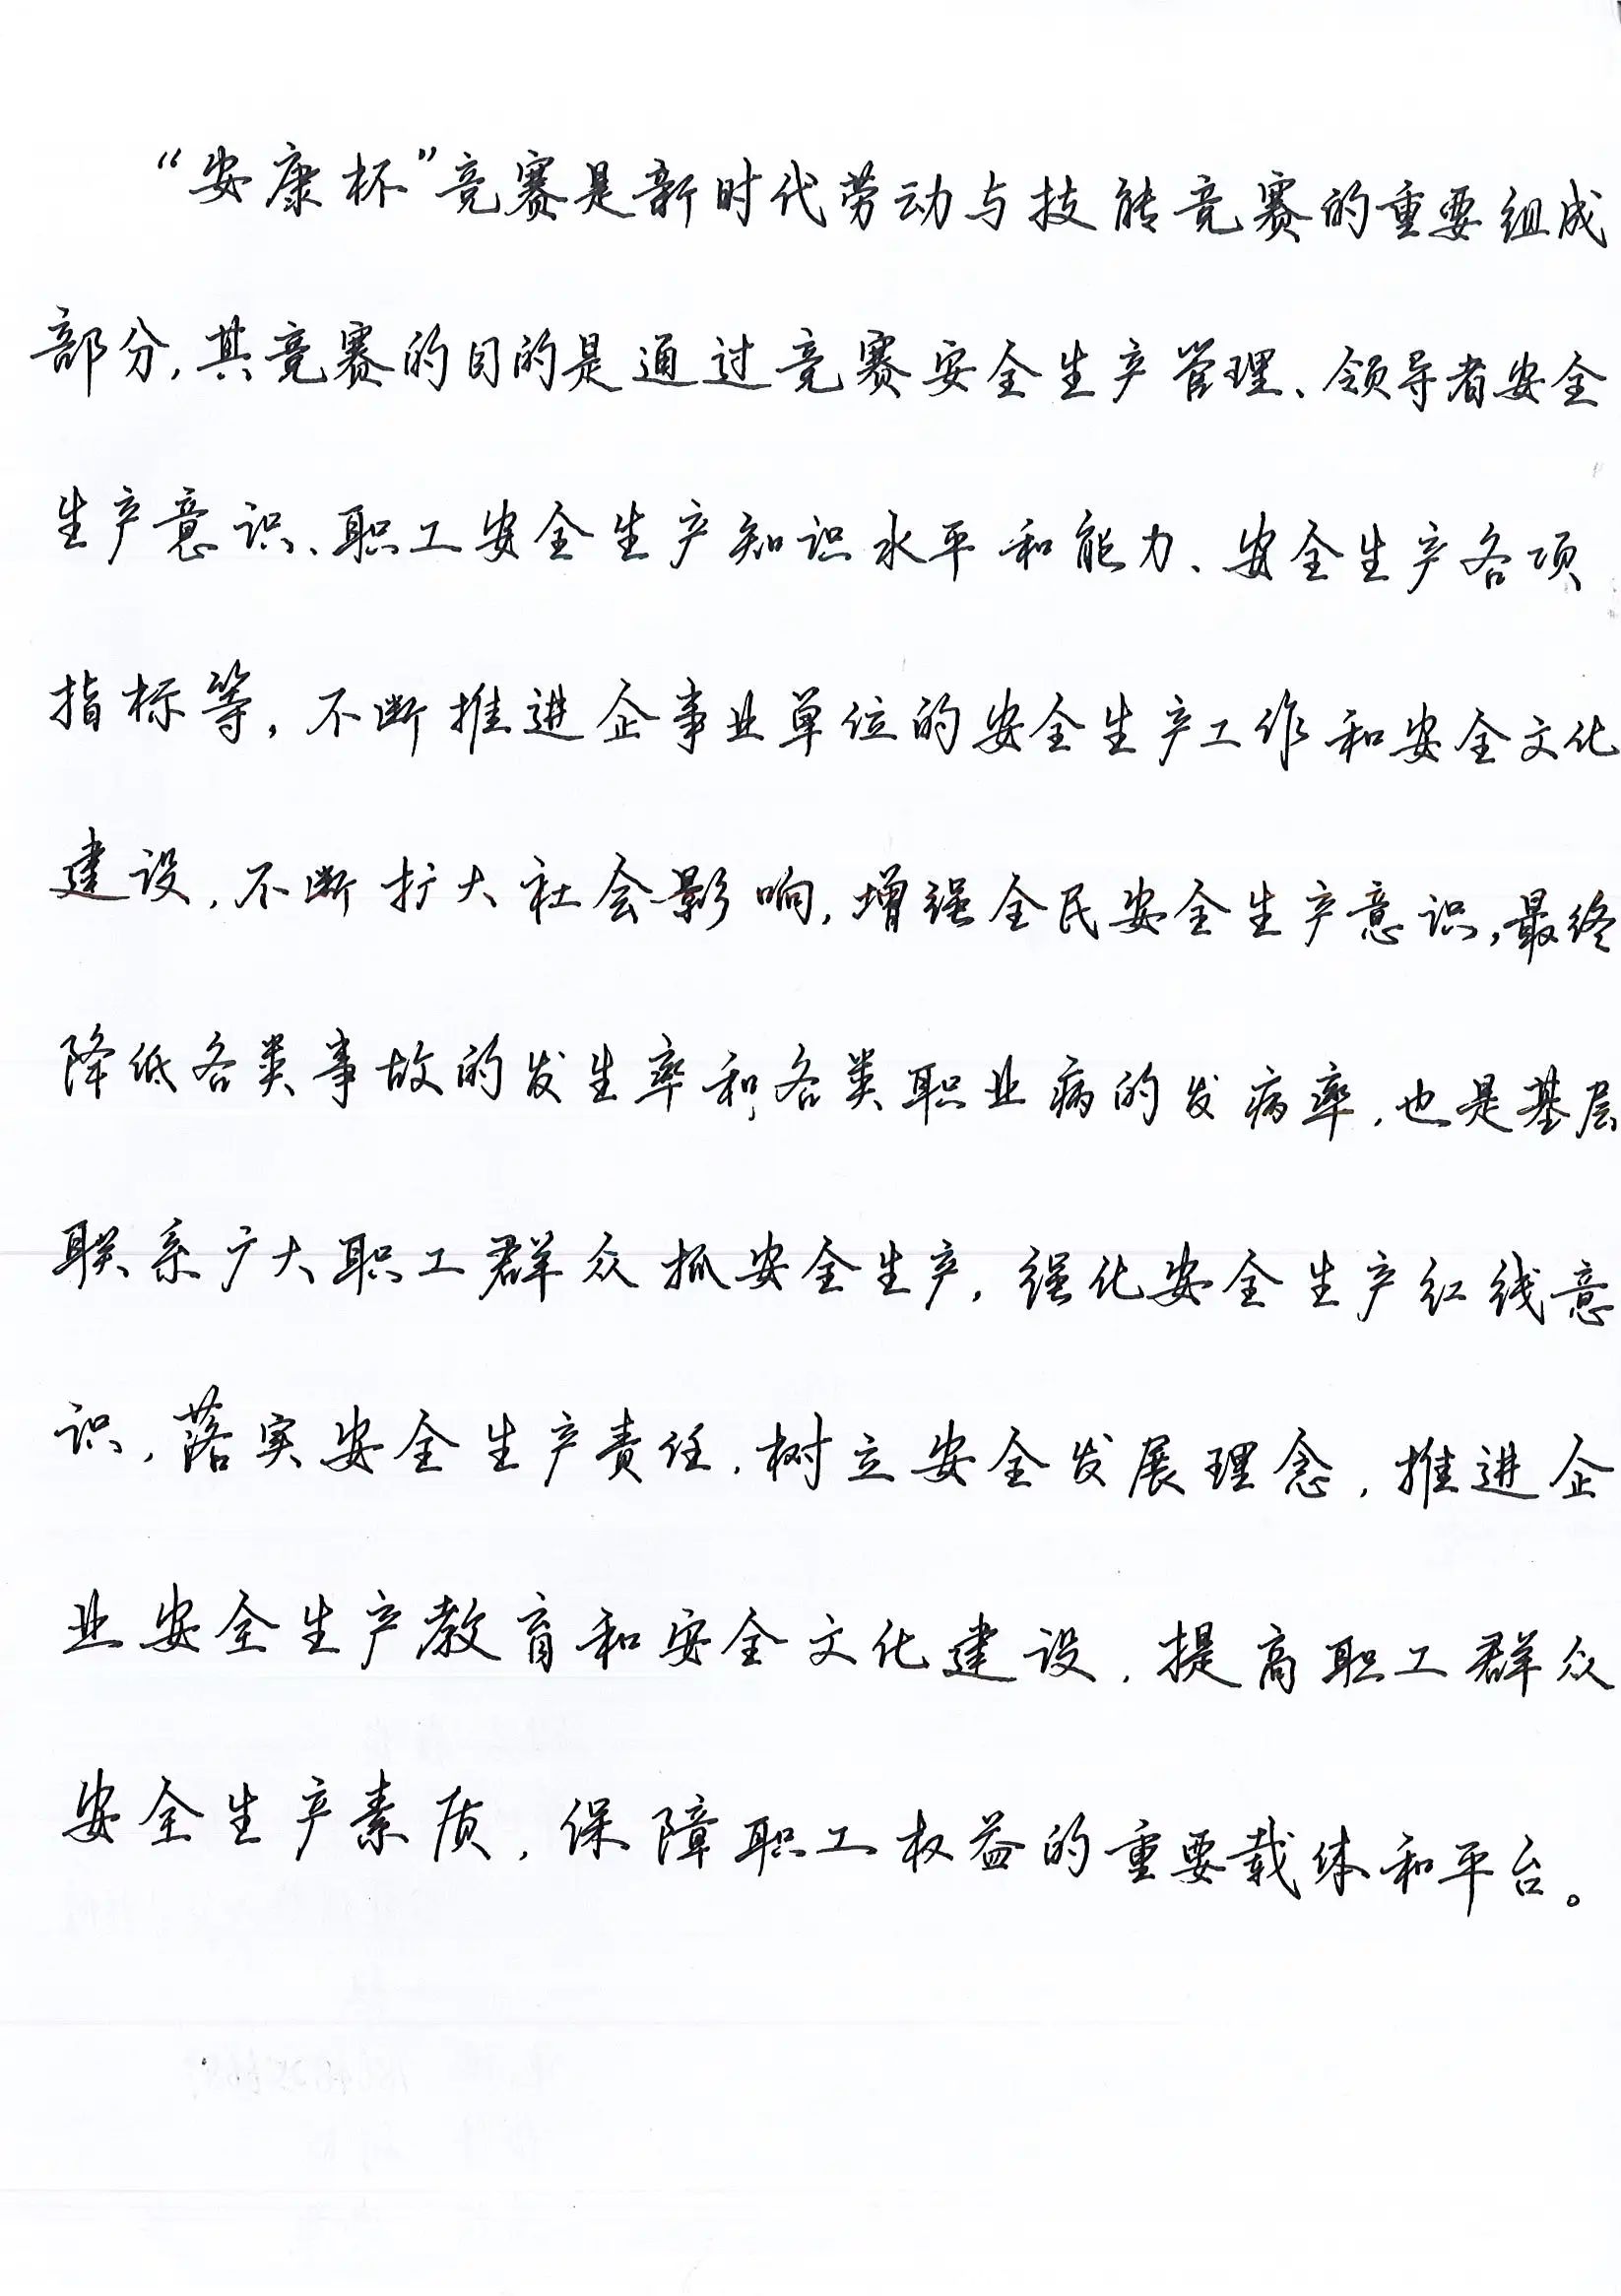 “安康杯”竞赛是新时代劳动与技能竞赛的重要组成
部分,其竞赛的目的是通过竞赛安全生产管理、领导者安全
生产意识、职工安全生产知识水平和能力、安全生产各项
指标等,不断推进企事业单位的安全生产工作和安全文化
建设,不断扩大社会影响,增强全民安全生产意识,最终
降低各类事故的发生率和各类职业病的发病率,也是基层
联系广大职工群众抓安全生产,强化安全生产红线意
识,落实安全生产责任,树立安全发展理念,推进企
业安全生产教育和安全文化建设,提高职工群众
安全生产素质,保障职工权益的重要载体和平台。